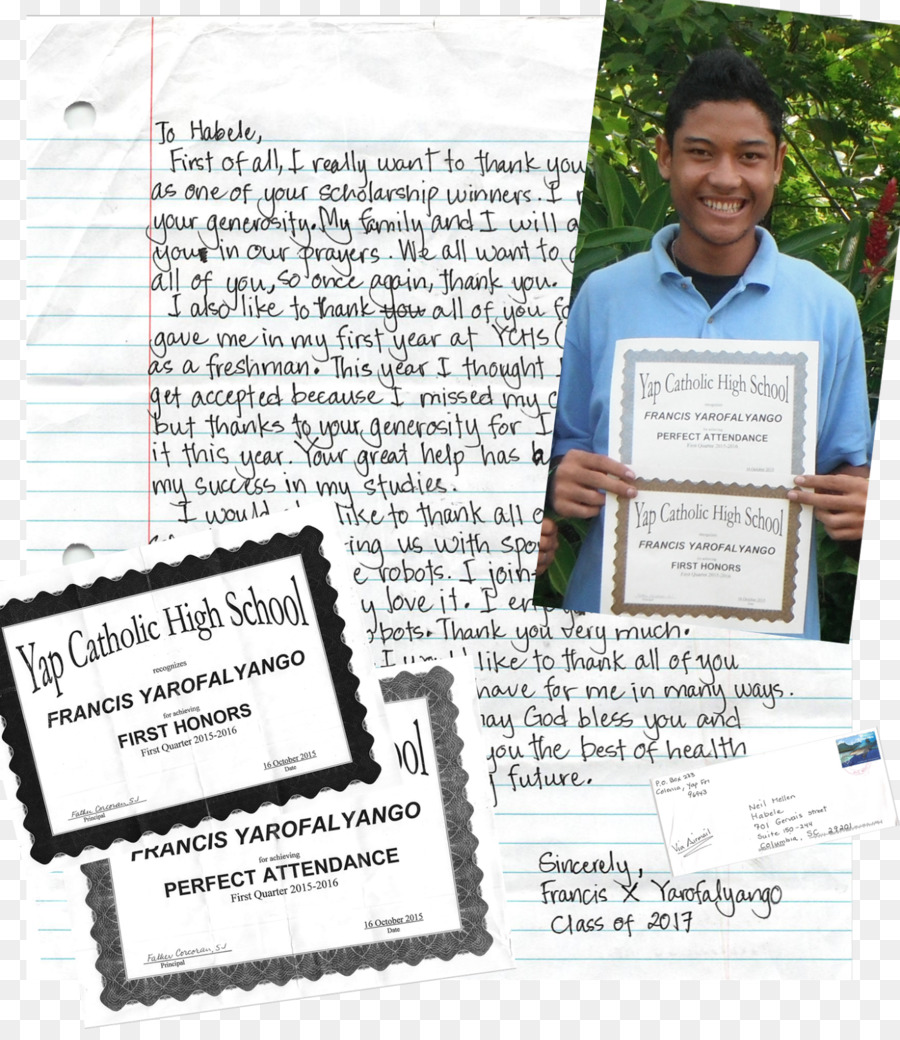 To Habele,
First of all, I really want to thank you
as one of your scholarship winners. I
your generosity. My family and I will
your in our prayers. We all want to
all of you, so once again, thank you.
I also like to thank you all of you
gave me in my first year at YCHS
as a freshman. This year I thought
get accepted because I missed my
but thanks to your generosity for I
it this year. Your great help has
my success in my studies.
I would like to thank all
us with
robots. I join-
love it. I
Thank you very much.
I like to thank all of you
have for me in many ways.
may God bless you and
you the best of health
future.
Sincerely,
Francis X Yarofalyango
Class of 2017
Yap Catholic High School
recognizes
FRANCIS YAROFALYANGO
for achieving
PERFECT ATTENDANCE
First Quarter 2015-2016
16 October 2015
Yap Catholic High School
recognizes
FRANCIS YAROFALYANGO
for achieving
FIRST HONORS
First Quarter 2015-2016
Yap Catholic High School
recognizes
FRANCIS YAROFALYANGO
for achieving
FIRST HONORS
First Quarter 2015-2016
16 October 2015
Date
Father Corcoran, SJ
Principal
FRANCIS YAROFALYANGO
for achieving
PERFECT ATTENDANCE
First Quarter 2015-2016
16 October 2015
Date
Father Corcoran, SJ
Principal
P.O. Box 223
Colonia, Yap
96943
Neil Mellen
Habele
701 Gervais Street
Suite 150-244
Columbia, SC 29201
Via Airmail